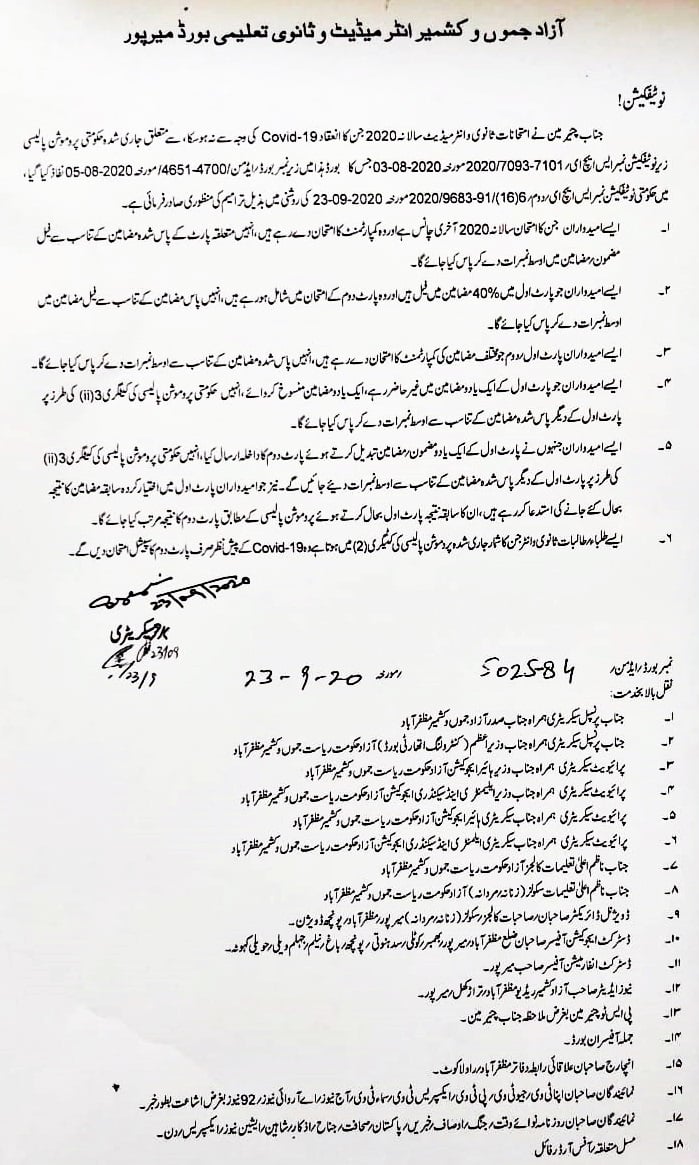 آزاد جموں و کشمیر انٹر میڈیٹ و ثانوی تعلیمی بورڈ میرپور
نوٹیفکیشن!
جناب چیئرمین نے امتحانات ثانوی و انٹر میڈیٹ سالانہ 2020 جن کا انعقاد Covid-19 کی وجہ سے نہ ہوسکا، سے متعلق جاری شدہ حکومتی پروموشن پالیسی
زیر نوٹیفکیشن نمبر ایس ایچ ای/ 2020/7093-7101 مورخہ 03-08-2020 جس کا بورڈ ہذا میں زیر نمبر بورڈ/ایڈمن/4651-4700 مورخہ 05-08-2020 نفاذ کیا گیا،
میں حکومتی نوٹیفکیشن نمبر ایس ایچ ای/دوم/6(16)/2020/9683-91 مورخہ 23-09-2020 کی روشنی میں بذیل ترامیم کی منظوری صادر فرمائی ہے۔
۱۔ ایسے امیدواران جن کا امتحان سالانہ 2020 آخری چانس ہے اور وہ کمپارٹمنٹ کا امتحان دے رہے ہیں، انہیں متعلقہ پارٹ کے پاس شدہ مضامین کے تناسب سے فیل
مضمون/مضامین میں اوسط نمبرات دے کر پاس کیا جائے گا۔
۲۔ ایسے امیدواران جو پارٹ اول میں 40% مضامین میں فیل ہیں اور وہ پارٹ دوم کے امتحان میں شامل ہو رہے ہیں، انہیں پاس مضامین کے تناسب سے فیل مضامین میں
اوسط نمبرات دے کر پاس کیا جائے گا۔
۳۔ ایسے امیدواران پارٹ اول/دوم جو مختلف مضامین کی کمپارٹمنٹ کا امتحان دے رہے ہیں، انہیں پاس شدہ مضامین کے تناسب سے اوسط نمبرات دے کر پاس کیا جائے گا۔
۴۔ ایسے امیدواران جو پارٹ اول کے ایک یا دو مضامین میں غیر حاضر رہے، ایک یا دو مضامین منسوخ کروائے، انہیں حکومتی پروموشن پالیسی کی کیٹگری 3(ii) کی طرز پر
پارٹ اول کے دیگر پاس شدہ مضامین کے تناسب سے اوسط نمبرات دے کر پاس کیا جائے گا۔
۵۔ ایسے امیدواران جنہوں نے پارٹ اول کے ایک یا دو مضمون/مضامین تبدیل کرتے ہوئے پارٹ دوم کا داخلہ ارسال کیا، انہیں حکومتی پروموشن پالیسی کی کیٹگری 3(ii)
کی طرز پر پارٹ اول کے دیگر پاس شدہ مضامین کے تناسب سے اوسط نمبرات دیئے جائیں گے۔ نیز جو امیدواران پارٹ اول میں اختیار کردہ سابقہ مضامین کا نتیجہ
بحال کئے جانے کی استدعا کر رہے ہیں، ان کا سابقہ نتیجہ پارٹ اول بحال کرتے ہوئے پروموشن پالیسی کے مطابق پارٹ دوم کا نتیجہ مرتب کیا جائے گا۔
۶۔ ایسے طلباء/طالبات ثانوی و انٹر جن کا شمار جاری شدہ پروموشن پالیسی کی کٹیگری (2) میں ہوتا ہے وہ Covid-19 کے پیش نظر صرف پارٹ دوم کا سپیشل امتحان دیں گے۔
23/09/2020
سیکریٹری
23/09
23/9
نمبر بورڈ/ایڈمن/ 5025-84 /مورخہ 23-9-20
نقل بالا بخدمت:
۱۔ جناب پرنسپل سیکریٹری ہمراہ جناب صدر آزاد جموں و کشمیر مظفر آباد
۲۔ جناب پرنسپل سیکریٹری ہمراہ جناب وزیر اعظم (کنٹرولنگ اتھارٹی بورڈ) آزاد حکومت ریاست جموں و کشمیر مظفر آباد
۳۔ پرائیویٹ سیکریٹری ہمراہ جناب وزیر ہائیر ایجوکیشن آزاد حکومت ریاست جموں و کشمیر مظفر آباد
۴۔ پرائیویٹ سیکریٹری ہمراہ جناب وزیر ایلیمنٹری اینڈ سیکنڈری ایجوکیشن آزاد حکومت ریاست جموں و کشمیر مظفر آباد
۵۔ پرائیویٹ سیکریٹری ہمراہ جناب سیکریٹری ہائیر ایجوکیشن آزاد حکومت ریاست جموں و کشمیر مظفر آباد
۶۔ پرائیویٹ سیکریٹری ہمراہ جناب سیکریٹری ایلیمنٹری اینڈ سیکنڈری ایجوکیشن آزاد حکومت ریاست جموں و کشمیر مظفر آباد
۷۔ جناب ناظم اعلیٰ تعلیمات کالجز آزاد حکومت ریاست جموں و کشمیر مظفر آباد
۸۔ جناب ناظم اعلیٰ تعلیمات سکولز (زنانہ/مردانہ) آزاد حکومت ریاست جموں و کشمیر مظفر آباد
۹۔ ڈویژنل ڈائریکٹر صاحبان/صاحبات کالجز/سکولز (زنانہ/مردانہ) میرپور/مظفر آباد/پونچھ ڈویژن۔
۱۰۔ ڈسٹرکٹ ایجوکیشن آفیسر صاحبان ضلع مظفر آباد/میرپور/بھمبر/کوٹلی/سدھنوتی/پونچھ/باغ/نیلم/جہلم ویلی/حویلی کہوٹہ۔
۱۱۔ ڈسٹرکٹ انفارمیشن آفیسر صاحب میرپور۔
۱۲۔ نیوز ایڈیٹر صاحب آزاد کشمیر ریڈیو مظفر آباد/تراڑکھل/میرپور۔
۱۳۔ پی ایس ٹو چیئرمین بغرض ملاحظہ جناب چیئرمین۔
۱۴۔ جملہ آفیسران بورڈ۔
۱۵۔ انچارج صاحبان علاقائی رابطہ دفاتر مظفر آباد/راولاکوٹ۔
۱۶۔ نمائیندگان صاحبان اپنا ٹی وی/جیو ٹی وی/پی ٹی وی/ایکسپریس ٹی وی/سماء ٹی وی/آج نیوز/اے آر وائی نیوز/92 نیوز بغرض اشاعت بطور خبر۔
۱۷۔ نمائیندگان صاحبان روزنامہ نوائے وقت/جنگ/اوصاف/خبریں/پاکستان/صحافت/جناح/اذکار/شاہین/ایشین نیوز/ایکسپریس/دن۔
۱۸۔ مسل متعلقہ/آفس آرڈر فائل